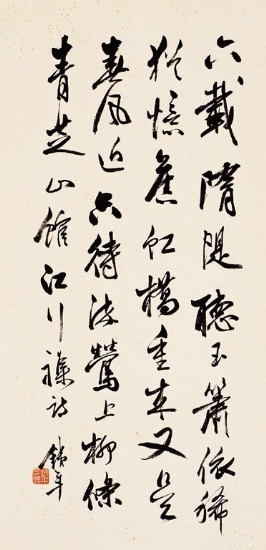 六載隋堤聽玉簫依稀
猶憶舊紅橋重來又是
春風近只待流鶯上柳條
青芝山館江行雜詩